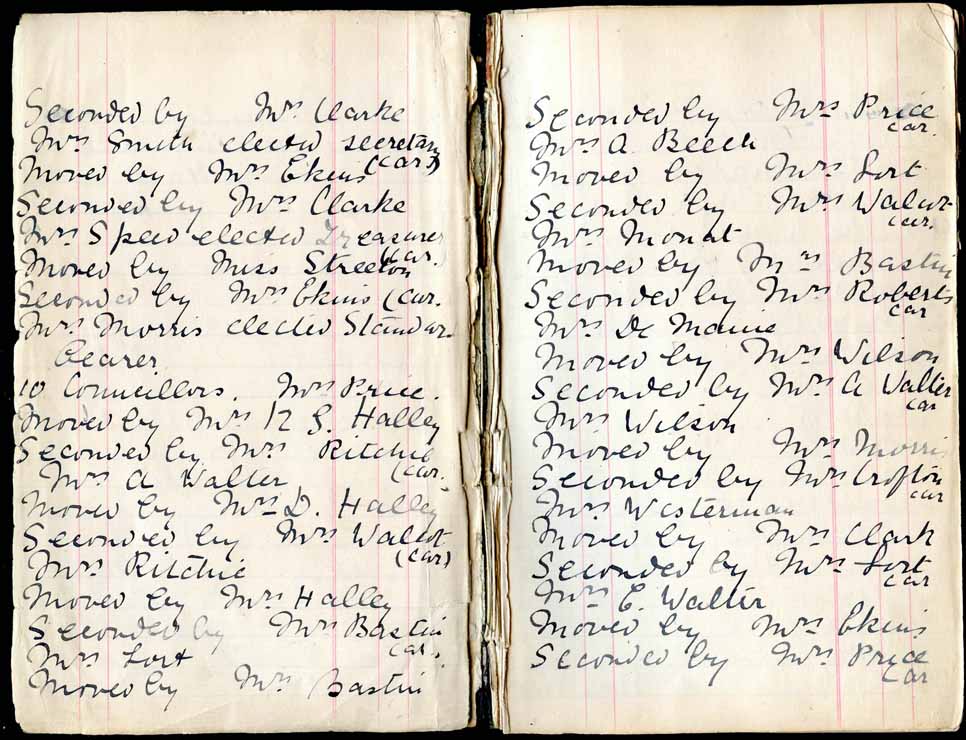 Seconded by Mrs Clarke
Mrs Smith elected secretary
(car.)
Moved by Mrs Ekins
Seconded by Mrs Clarke
Mrs Speed elected Treasurer
(car.
Moved by Miss Streeton
Seconded by Mrs Ekins (car.
Mrs Morris elected Standar-
Bearer
10 Councillors. Mrs Price.
Moved by Mrs S. Halley
Seconded by Mrs Ritchie
(car.
Mrs A Walter
Moved by Mrs D. Halley
Seconded by Mrs
(car)
Mrs Ritchie
Moved by Mrs Halley
Seconded by Mrs Bastin
car.
Mrs Lort
Moved by Mrs Bastin
Seconded by Mrs Price
car.
Mrs A. Beech
Moved by Mrs Lort
Seconded by Mrs
car.
Mrs Monat
Moved by Mrs Bastin
Seconded by Mrs Roberts
car
Mrs De Maine
Moved by Mrs Wilson
Seconded by Mrs A Walter
car
Mrs Wilson
Moved by Mrs Morris
Seconded by Mrs Crofton
car
Mrs Westerman
Moved by Mrs Clark
Seconded by Mrs Lort
car
Mrs E. Walter
Moved by Mrs Ekins
Seconded by Mrs Price
car